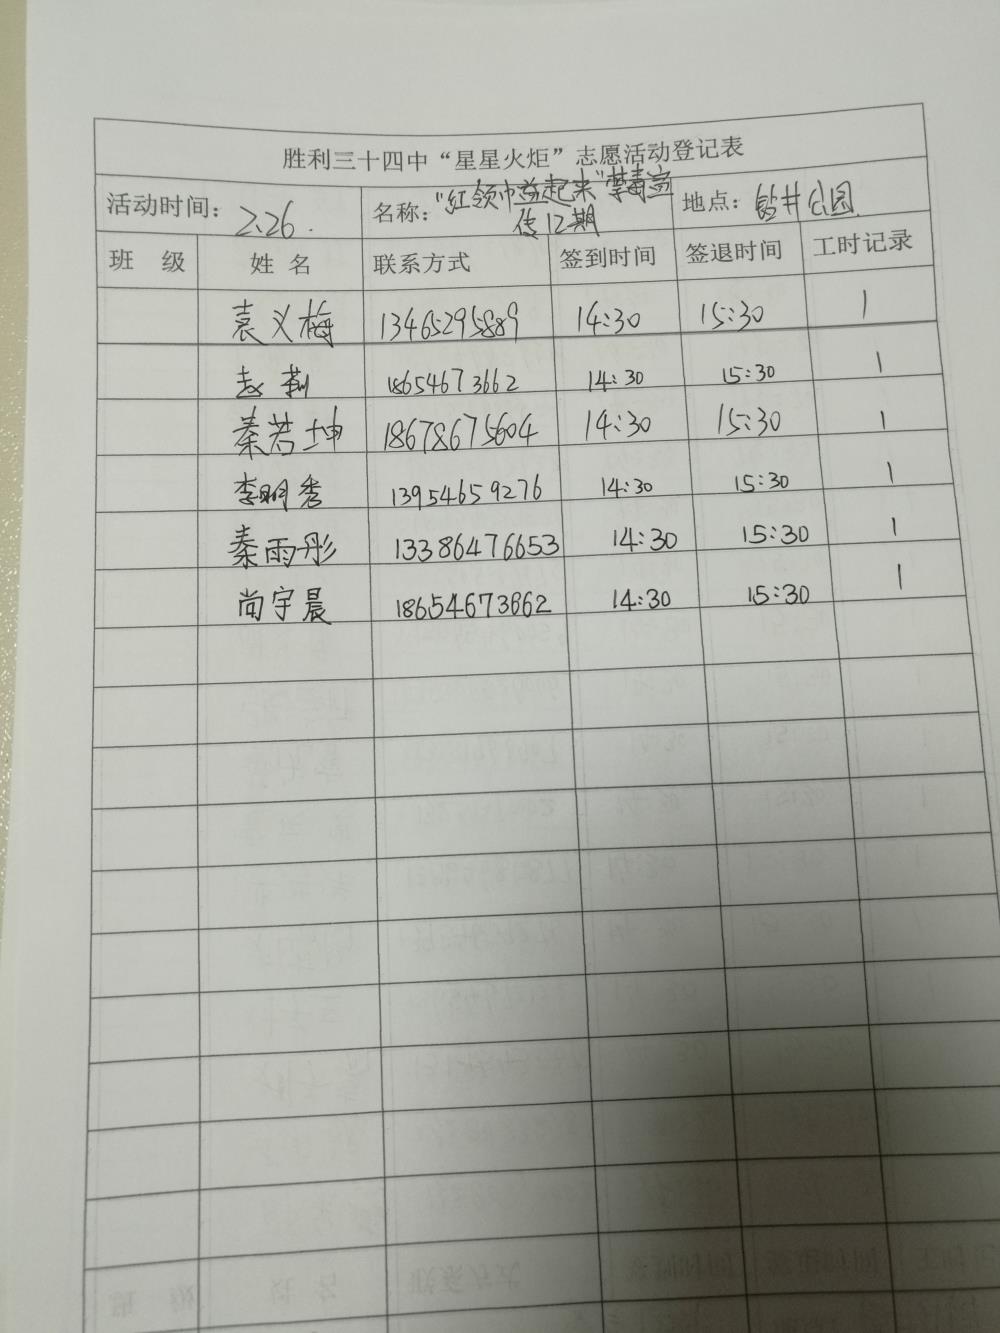 胜利三十四中“星星火炬”志愿活动登记表
活动时间： 2.26. 名称：“红领巾益起来”禁毒宣传12期 地点：钻井公园
班 级 姓 名 联系方式 签到时间 签退时间 工时记录
袁义梅 13465295889 14:30 15:30 1
赵莉 18654673662 14:30 15:30 1
秦若坤 18678675604 14:30 15:30 1
李明秀 13954659276 14:30 15:30 1
秦雨彤 13386476653 14:30 15:30 1
尚宇晨 18654673662 14:30 15:30 1